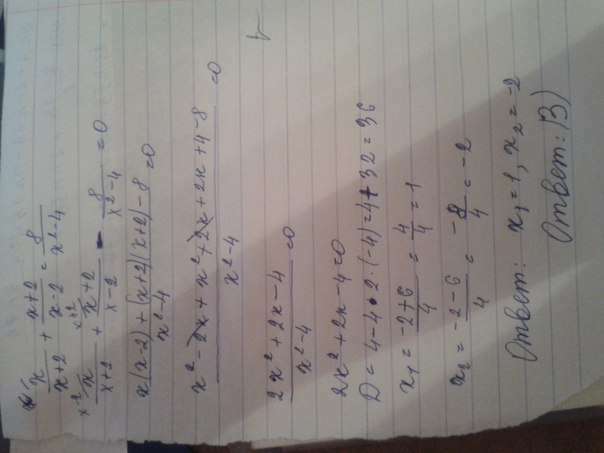 x/(x+2) + (x+2)/(x-2) = 8/(x²-4)
x-2 x/(x+2) + x+2 (x+2)/(x-2) - 8/(x²-4) = 0
(x(x-2)+(x+2)(x+2)-8)/(x²-4) = 0
(x²-2x+x²+2x+2x+4-8)/(x²-4) = 0
(2x²+2x-4)/(x²-4) = 0
2x²+2x-4=0
D=4-4·2·(-4)=4+32=36
x₁ = (-2+6)/4 = 4/4 = 1
x₂ = (-2-6)/4 = -8/4 = -2
Ответ: x₁=1, x₂=-2
Ответ: В)